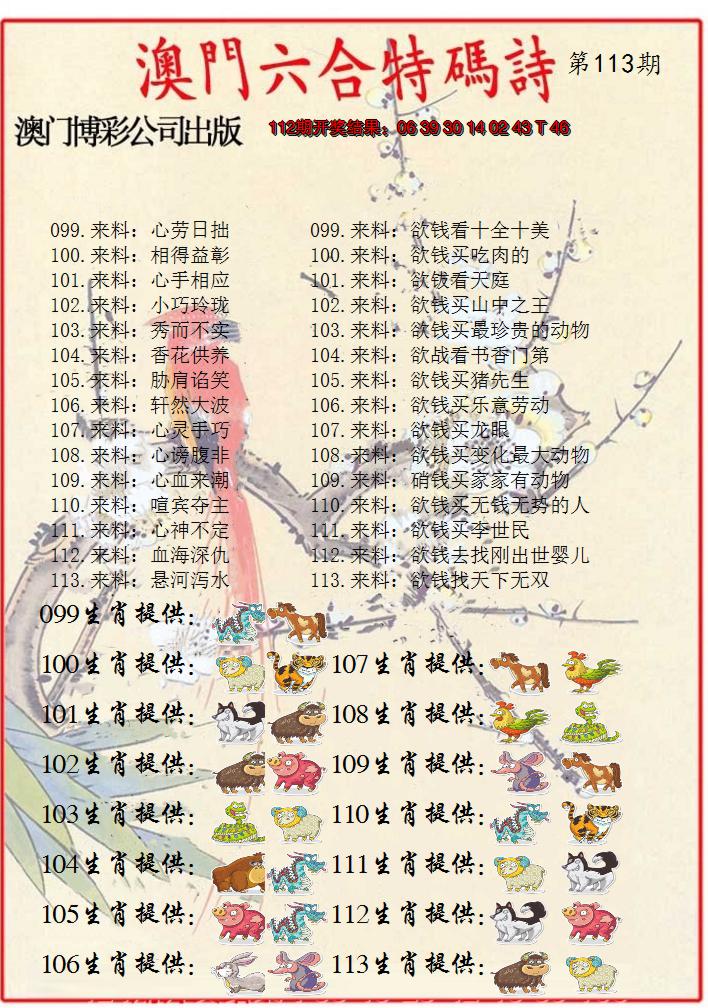 澳門六合特碼詩 第113期
澳门博彩公司出版 112期开奖结果：06 39 30 14 02 43 T 46
099.来料：心劳日拙 099.来料：欲钱看十全十美
100.来料：相得益彰 100.来料：欲钱买吃肉的
101.来料：心手相应 101.来料：欲钱看天庭
102.来料：小巧玲珑 102.来料：欲钱买山中之王
103.来料：秀而不实 103.来料：欲钱买最珍贵的动物
104.来料：香花供养 104.来料：欲战看书香门第
105.来料：胁肩谄笑 105.来料：欲钱买猪先生
106.来料：轩然大波 106.来料：欲钱买乐意劳动
107.来料：心灵手巧 107.来料：欲钱买龙眼
108.来料：心谤腹非 108.来料：欲钱买变化最大动物
109.来料：心血来潮 109.来料：硝钱买家家有动物
110.来料：喧宾夺主 110.来料：欲钱买无钱无势的人
111.来料：心神不定 111.来料：欲钱买李世民
112.来料：血海深仇 112.来料：欲钱去找刚出世婴儿
113.来料：悬河泻水 113.来料：欲钱找天下无双
099生肖提供：
100生肖提供： 107生肖提供：
101生肖提供： 108生肖提供：
102生肖提供： 109生肖提供：
103生肖提供： 110生肖提供：
104生肖提供： 111生肖提供：
105生肖提供： 112生肖提供：
106生肖提供： 113生肖提供：